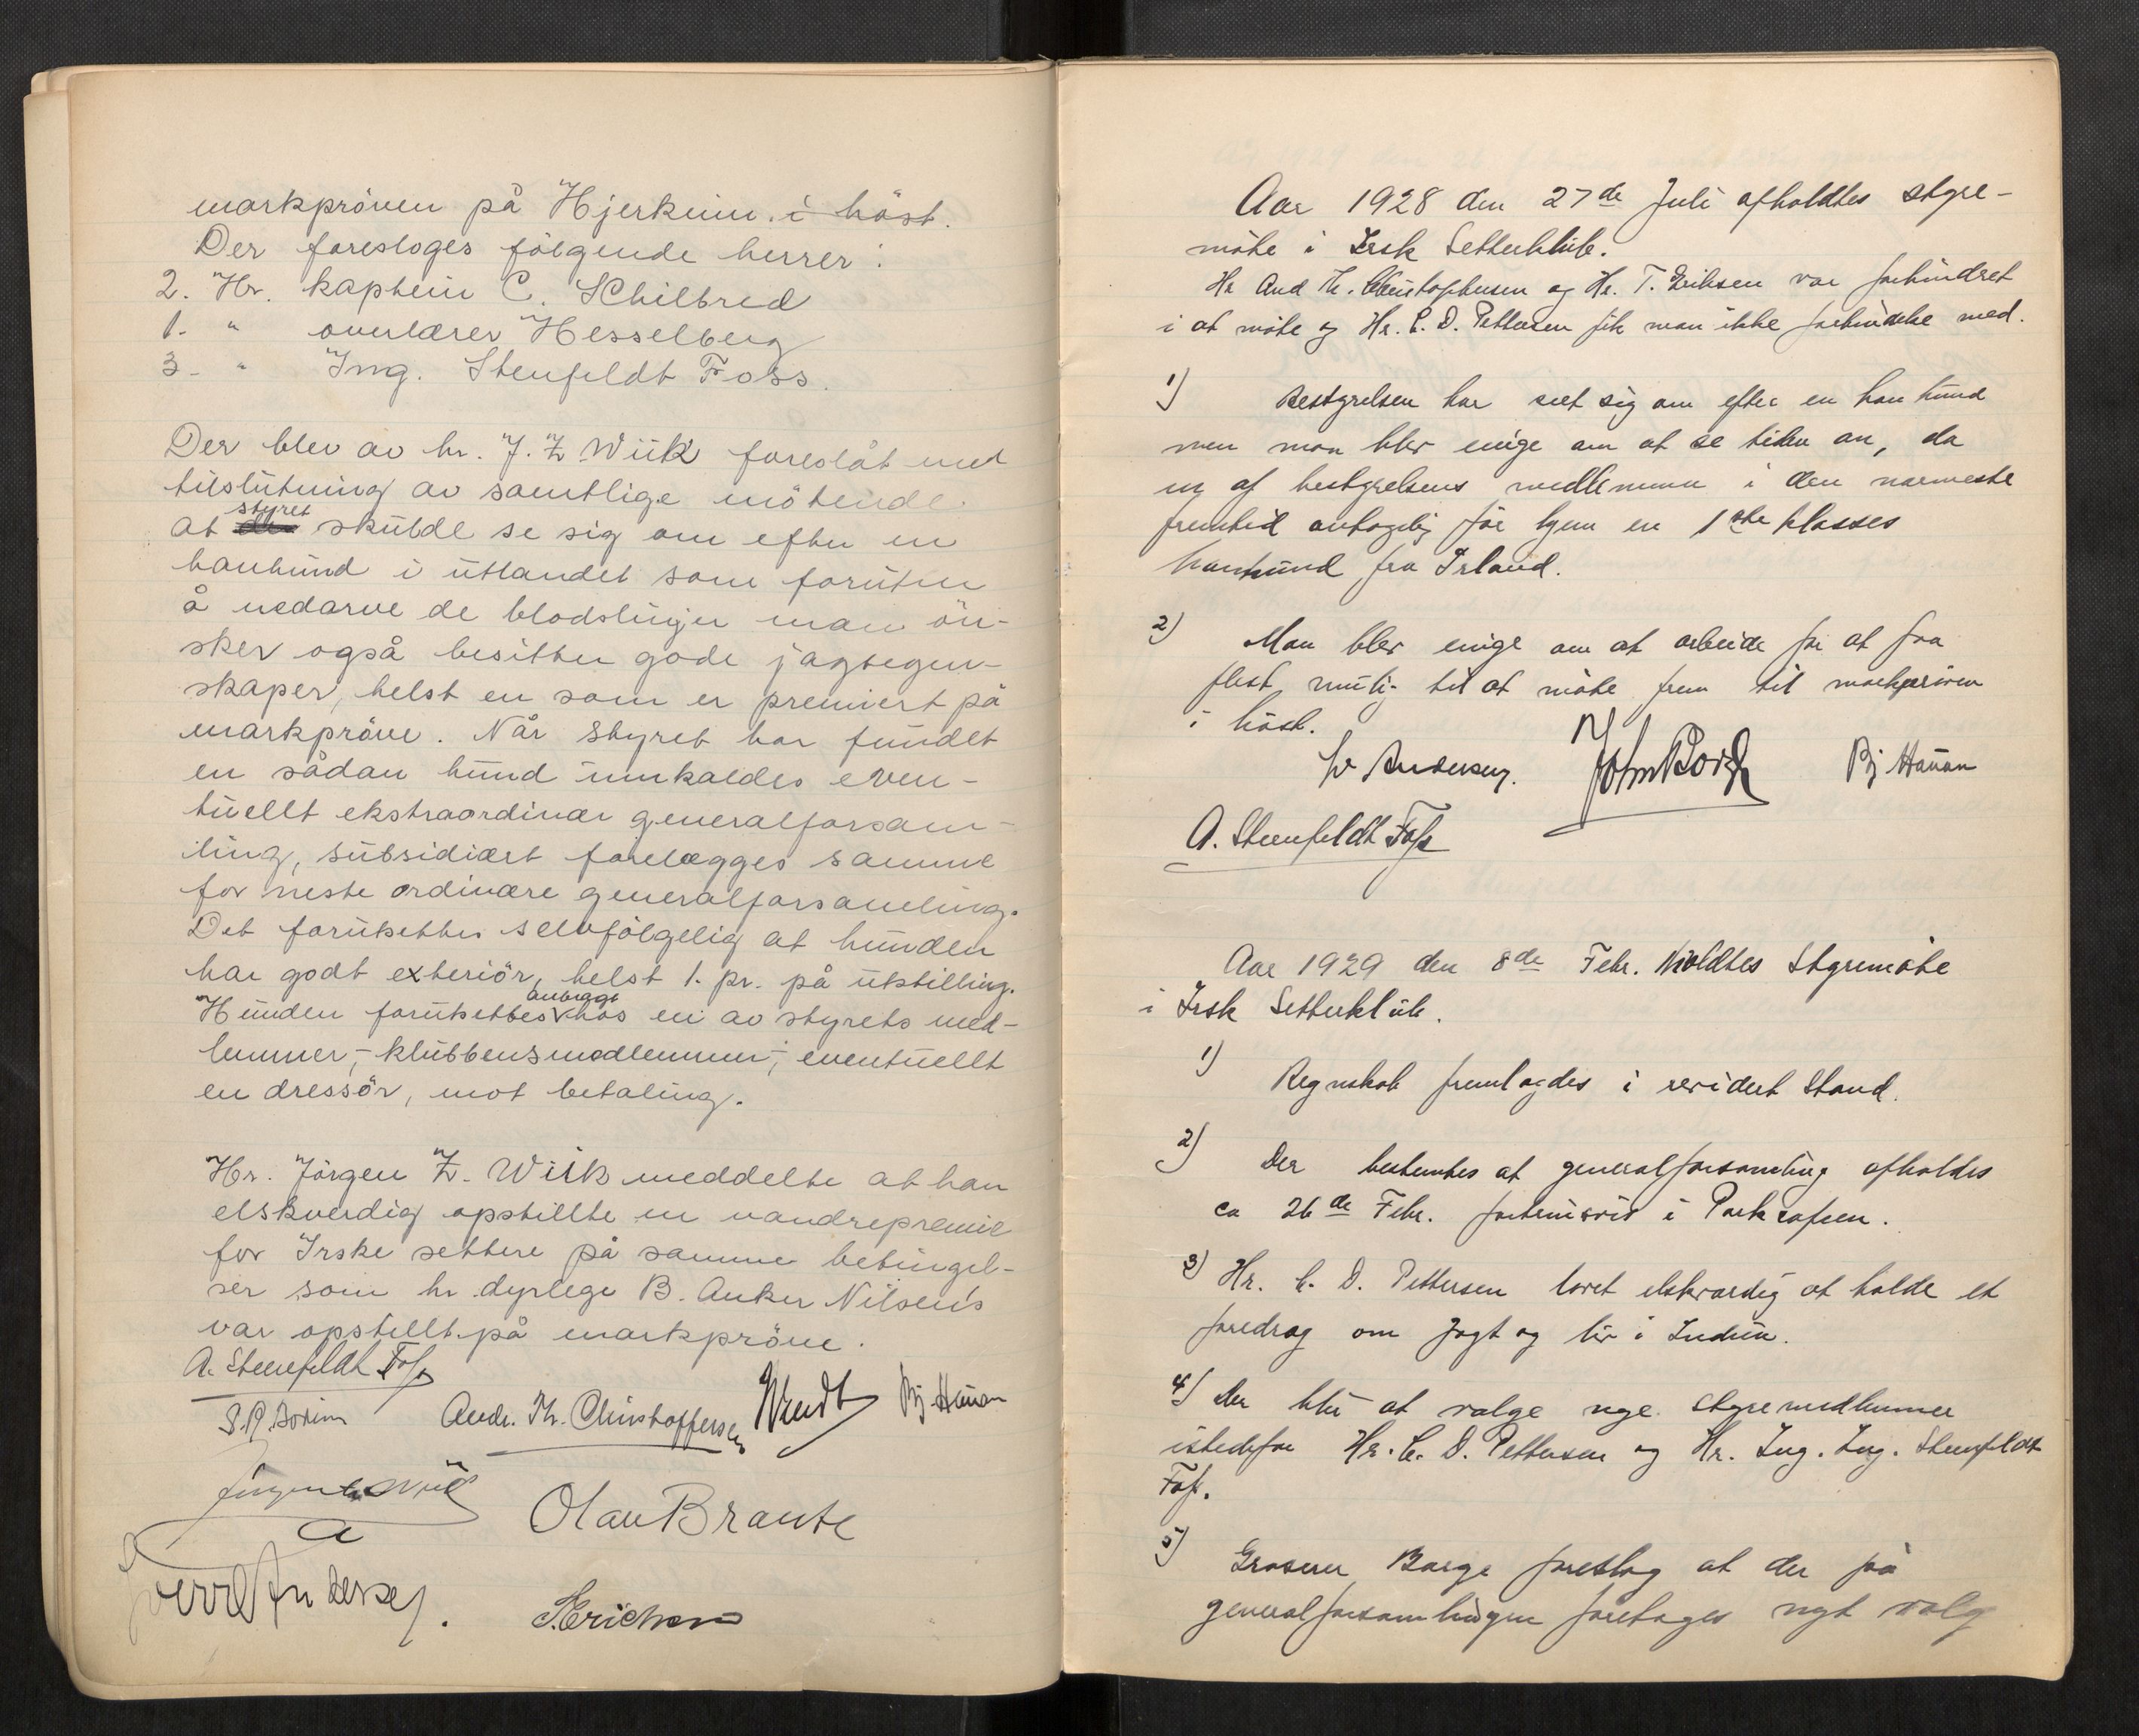 markpröven på Hjerkinn i höst.
Der foresloges fölgende herrer:
2. Hr. kaptein C. Schilbred
1. " overlærer Hesselberg
3. " Ing. Stenfeldt Foss.
Der blev av hr. J. Z. Wiik foreslåt med
tilslutning av samtlige mötende
at styret skulde se sig om efter en
hanhund i utlandet som foruten
å nedarve de blodslinjer man ön-
sker også besitter gode jagtegen-
skaper, helst en som er premiert på
markpröve. Når styret har fundet
en sådan hund innkaldes even-
tuellt ekstraordinær generalforsam-
ling, subsidiært forelægges samme
for neste ordinære generalforsamling.
Det forutsettes selvfölgelig at hunden
har godt exteriör, helst 1. pr. på utstilling.
Hunden forutsettes anbragt hos en av styrets med-
lemmer,- klubbensmedlemmer,- eventuellt
en dressör, mot betaling.
Hr. Jörgen Z. Wiik meddelte at han
elskverdig opstillte en vandrepremie
for Irske settere på samme betingel-
ser som hr. dyrlege B. Anker Nilsen's
var opstillt på markpröve.
A. Steenfeldt Foss
Andr. Th. Christoffersen Wendt Bj. Hauan
Jørgen Z. Wiik
Olav Braute
Andersen.
T. Erichsen
Aar 1928 den 27de Juli afholdtes styre-
möte i Irsk Setterklub.
Hr And Th. Christophersen og Hr. T. Eriksen var forhindret
i at möte og Hr. C. D. Pettersen fik man ikke forbindelse med.
1) Bestyrelsen har seet sig om efter en han hund
men man blev enige om at se tiden an, da
en af bestyrelsens medlemmer i den nærmeste
fremtid antagelig får hjem en 1ste klasses
hanhund fra Irland.
2) Man blev enige om at arbeide for at faa
flest mulig til at möte frem til markpröven
i höst.
Andersen. John Borge Bj. Hauan
A. Steenfeldt Foss
Aar 1929 den 8de Febr. holdtes Styremöte
i Irsk Setterklub.
1) Regnskab fremlagdes i revidert Stand.
2) Der bestemtes at generalforsamling afholdes
ca 26de Febr. fortrinsvis i Parkcafeen.
3) Hr. C. D. Pettersen lovet elskværdig at holde et
foredrag om Jagt og liv i Indien.
4) Der blir at vælge nye styremedlemmer
istedetfor Hr. C. D. Pettersen og Hr. Ing. Ing. Steenfeldt
Foss.
5) Grosserer Borge foreslog at der på
generalforsamlingen foretages nyt valg